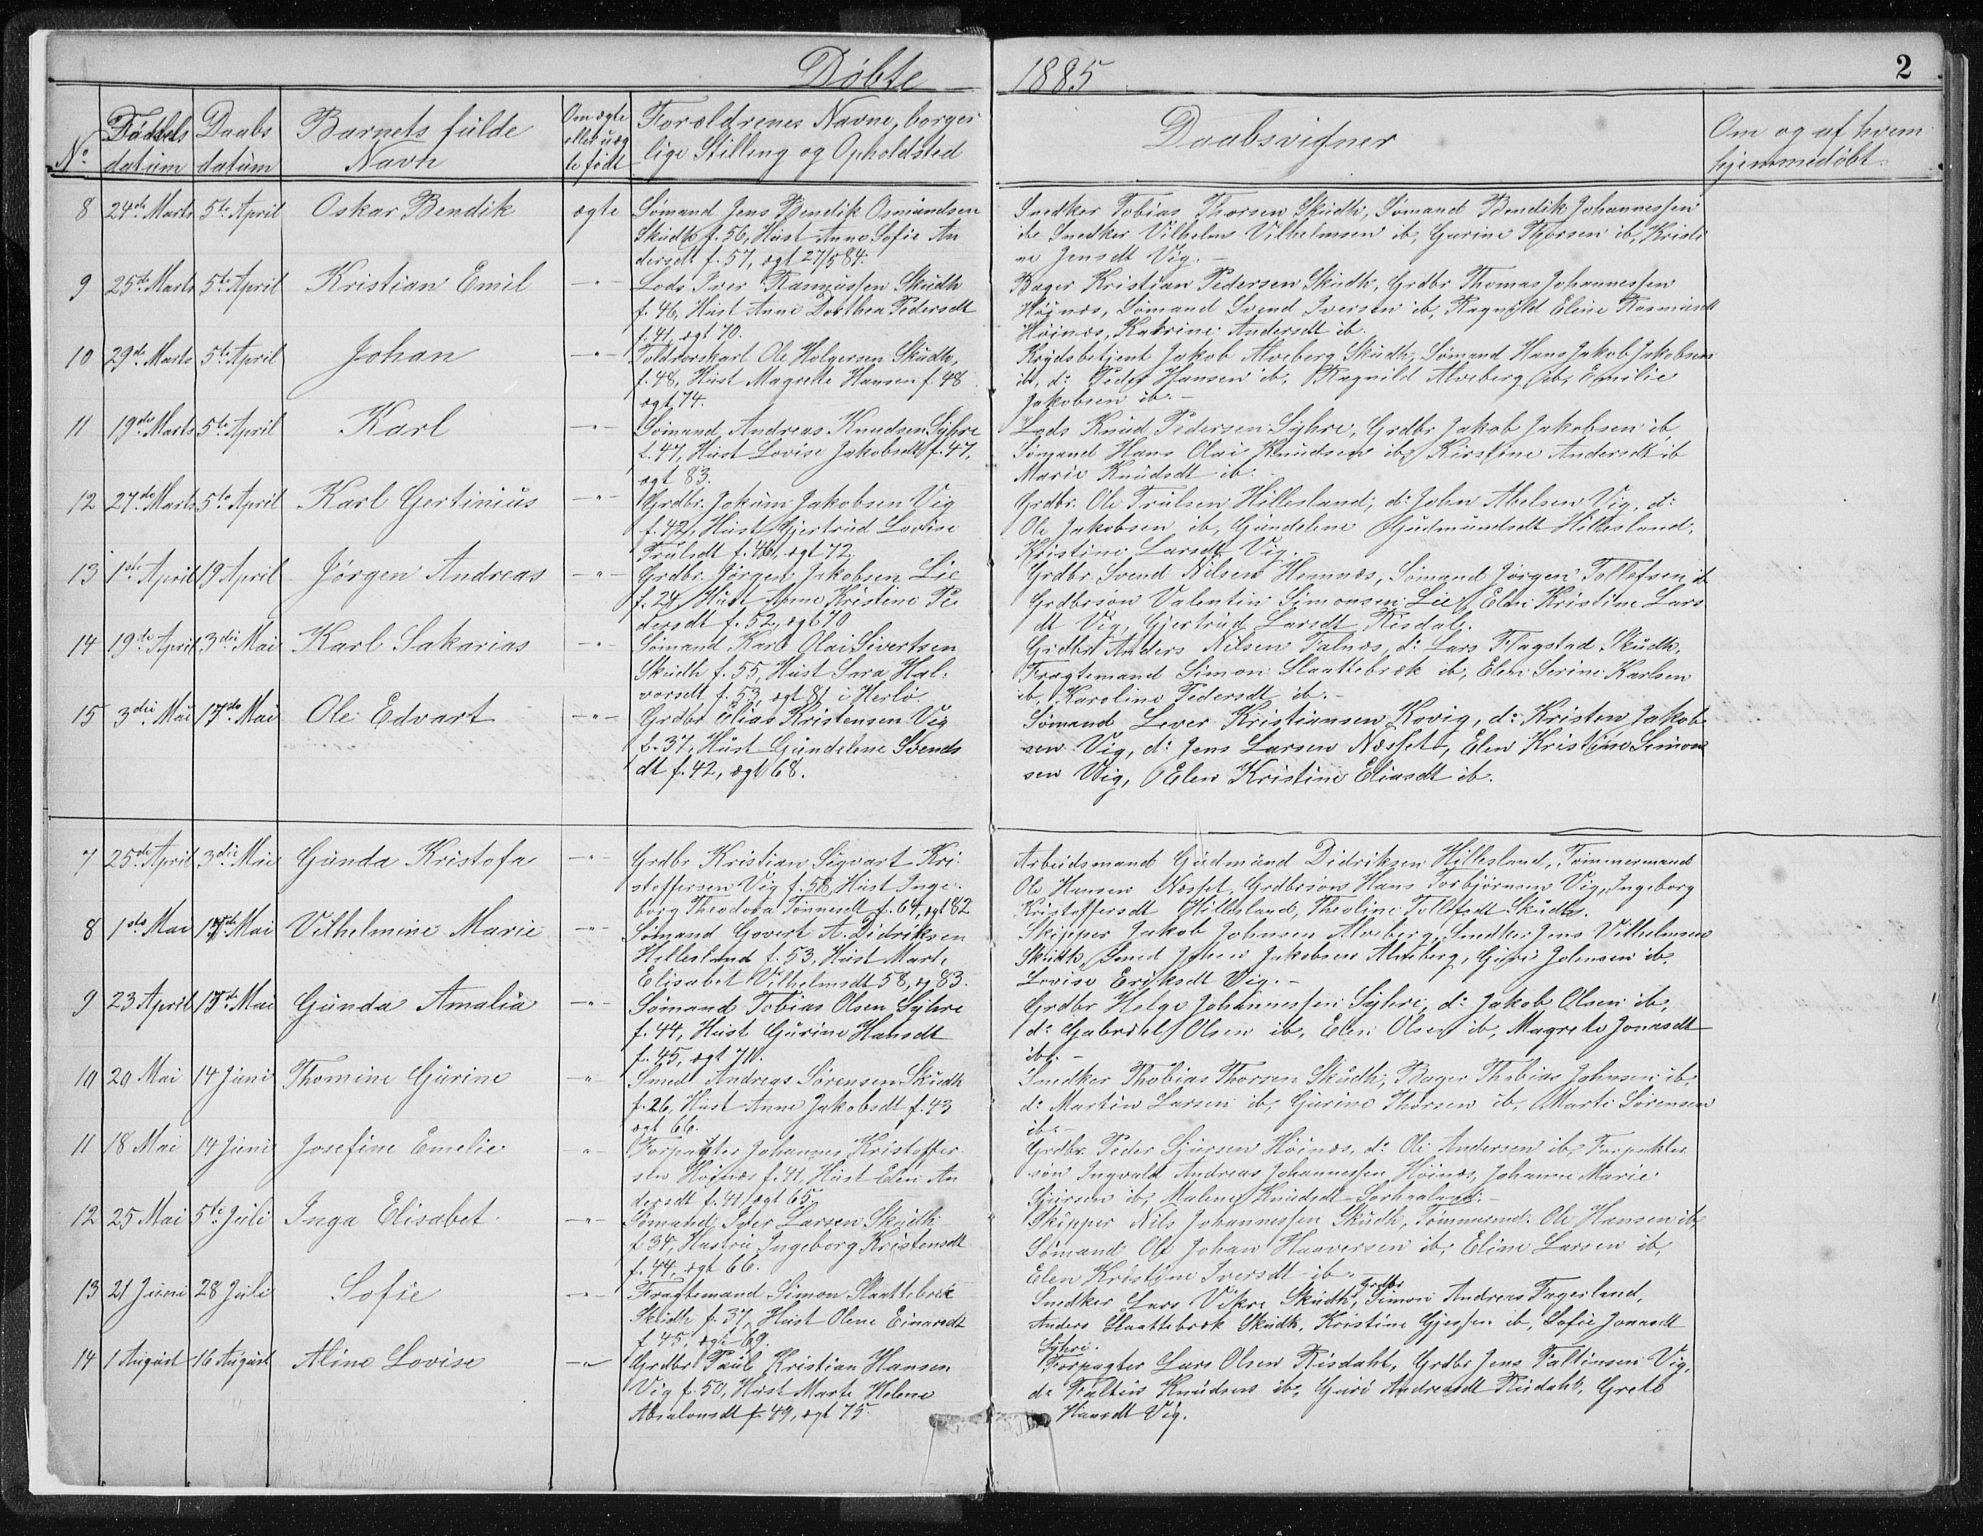 Døbte 1885 2
No. Fødsels datum Daabs datum Barnets fulde Navn Om ægte eller uægte født Forældrenes Navne, borgerlige Stilling og Opholdsted Daabsvidner Om og af hvem hjemmedøbt.
8 24de Marts 5te April Oskar Bendik ægte Sømand Jens Bendik Osmundsen
Skudh f. 56, Hust Anne Sofie An
dersdt f. 57, ægt 27/5 84.
Snedker Tobias Thorsen Skudh, Sømand Bendik Johannessen
ib. Snedker Vilhelm Vilhelmsen ib, Gurine Thorsen ib, Kristi
ne Jensdt Vig. -
9 25de Marts 5te April Kristian Emil -"- Lods Iver Rasmussen Skudh
f. 46, Hust Anne Dorthea Pedersdt
f. 41, ægt 70.
Bager Kristian Pedersen Skudh, Grdbr Thomas Johannessen
Høinæs, Sømand Svend Iversen ib, Ragnhild Eline Rasmusdt
Høinæs, Katrine Andersdt ib.
10 29de Marts 5te April Johan -"- Toldrorskarl Ole Holgersen Skudh,
f. 48, Hust Magrette Hansen f. 48
ægt 74.
Krydsbetjent Jakob Alveberg Skudh, Sømand Hans Jakob Jakobsen
ib, do Peder Hansen ib, Ragnild Alveberg ib, Emilie
Jakobsen ib. -
11 19de Marts 5te April Karl -"- Sømand Andreas Knudsen Syhre
f. 47, Hust Lovise Jakobsdt f. 47,
ægt 83.
Lods Knud Pedersen Syhre, Grdbr Jakob Jakobsen ib,
Sømand Hans Olai Knudsen ib, Kirstine Andersdt ib
Marie Knudsdt ib.
12 27de Marts 5te April Karl Gertinius -"- Grdbr. Jokum Jakobsen Vig
f. 42, Hust Gjertrud Lovise
Trulsdt f. 46, ægt 72.
Grdbr. Ole Trulsen Hillesland, do John Abelsen Vig, do
Ole Jakobsen ib, Gundelene Gudmundsdt Hillesland,
Kristine Larsdt Vig. -
13 1ste April 19 April Jørgen Andreas -"- Grdbr. Jørgen Jakobsen Lie
f. 24, Hust Anne Kristine Pe
dersdt f. 52, ægt 70
Grdbr. Svend Nilsen Hemnæs, Sømand Jørgen Tollefsen ib
Grdbrsøn Valentin Simonsen Lie, Elen Kristine Lars
dt Vig, Gjertrud Larsdt Risdal.
14 19de April 3die Mai Karl Sakarias -"- Sømand Karl Olai Sivertsen
Skudh f. 55, Hust Sara Hal-
vorsdt f. 53, ægt 81 i Herlø.
Grdbr Anders Nilsen Falnæs, do Lars Flagstad Skudh,
Fragtemand Simon Slaattebræk ib, Elen Serine Karlsen
ib, Karoline Pedersdt ib. -
15 3die Mai 17de Mai Ole Edvart -"- Grdbr Elias Kristensen Vig
f. 37, Hust Gundelene Svends
dt f. 42, ægt 68.
Sømand Sever Kristiansen Kovig, do Kristen Jakob
sen Vig, do Jens Larsen Næsset, Elen Kristine Simon
sen Vig, Elen Kristine Eliasdt ib.
7 25de April 3die Mai Gunda Kristofa -"- Grdbr Kristian Sigvart Kri-
stoffersen Vig f. 58, Hust Inge-
borg Theodora Tønnesdt f. 64, ægt 82
Arbeidsmand Gudmund Didriksen Hillesland, Tømmermand
Ole Hansen Næsset, Grdbrsøn Hans Torbjørnsen Vig, Ingeborg
Kristoffersdt Hillesland, Theoline Tollefsdt Skudh.
8 1ste Mai 17de Mai Vilhelmine Marie -"- Sømand Govert A. Didriksen
Hillesland f. 53, Hust Mart.
Elisabet Vilhelmsdt 58, æg 83.
Skipper Jakob Johnsen Alveberg, Snedker Jens Vilhelmsen
Skudh, Smed Johan Jakobsen Alveberg, Guri Johnsen ib.
Lovise Eriksdt Vig. -
9 23 April 17de Mai Gunda Amalia -"- Sømand Tobias Olsen Syhre
f. 44, Hust Gurine Hansdt
f. 45, ægt 71.
Grdbr Helge Johannessen Syhre, do Jakob Olsen ib,
do Gabriel Olsen ib, Elen Olsen ib, Magrete Jonasdt
ib. -
10 20 Mai 14 Juni Thomine Gurine -"- Smed Andreas Sørensen Skudh
f. 26, Hust Anne Jakobsdt f. 43
ægt 66.
Snedker Thobias Thorsen Skudh, Bager Thobias Johnsen ib,
do Martin Larsen ib, Gurine Thorsen ib, Marte Sørensen
ib. -
11 18 Mai 14 Juni Josefine Emelie -"- Forpagter Johannes Kristoffer
sen Høinæs f. 41, Hust Elen An
dersdt f. 41, ægt 65.
Grdbr. Peder Sjursen Høinæs, do Ole Andersen ib, Forpakter
søn Ingvald Andreas Johannessen Høinæs, Johanne Marie
Sjursen ib, Malene Knudsdt Sørhaaland. -
12 25 Mai 5te Juli Inga Elisabet -"- Sømand Iver Larsen Skudh
f. 34, Hustru Ingeborg Kristensdt
f. 44, ægt 66.
Skipper Nils Johannessen Skudh, Tømmermd. Ole Hansen ib,
Sømand Ole Johan Haaversen ib, Eline Larsen ib,
Elen Kristine Iversdt ib.
13 21 Juni 28 Juli Sofie -"- Fragtemand Simon Slaattebræk
Skudh f. 37, Hust Olene Einarsdt
f. 45, ægt 69.
Snedker Lars Vikre Skudh, Grdbr Simon Andreas Fagerland,
Anders Slaattebræk Skudh, Kristine Gjessen ib, Sofie Jonasdt
Syhre.
14 1 August 16 August Aline Lovise -"- Grdbr Paul Kristian Hansen
Vig f. 50, Hust Marte Helene
Absalonsdt f. 49, ægt 75.
Forpagter Lars Olsen Risdahl, Grdbr Jens Faltinsen Vig,
do Faltin Knudsen ib, Guri Andreasdt Risdahl, Grete
Hansdt Vig.